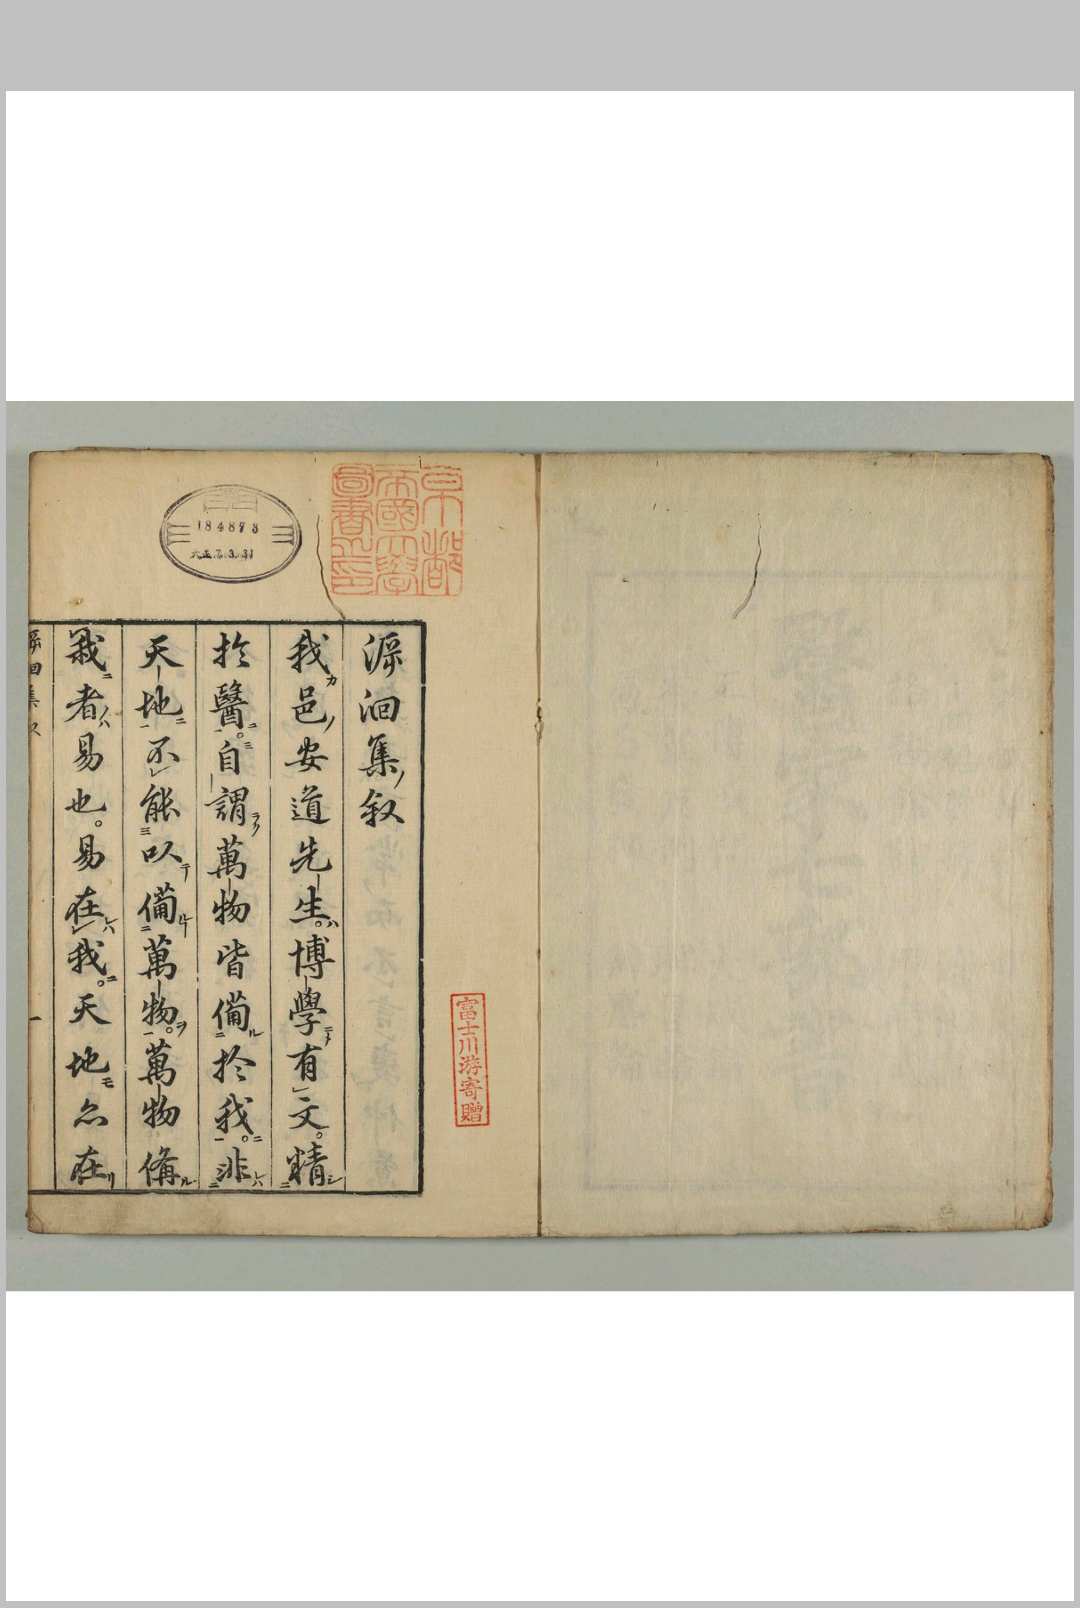 溯洄集叙
我邑安道先生。博學有文。精
於醫。自謂萬物皆備於我。非
天地不能以備萬物。萬物備
我者易也。易在我。天地亦在
京都
帝國大學
圖書之印
184873
大正 7.3.31
富士川游寄贈